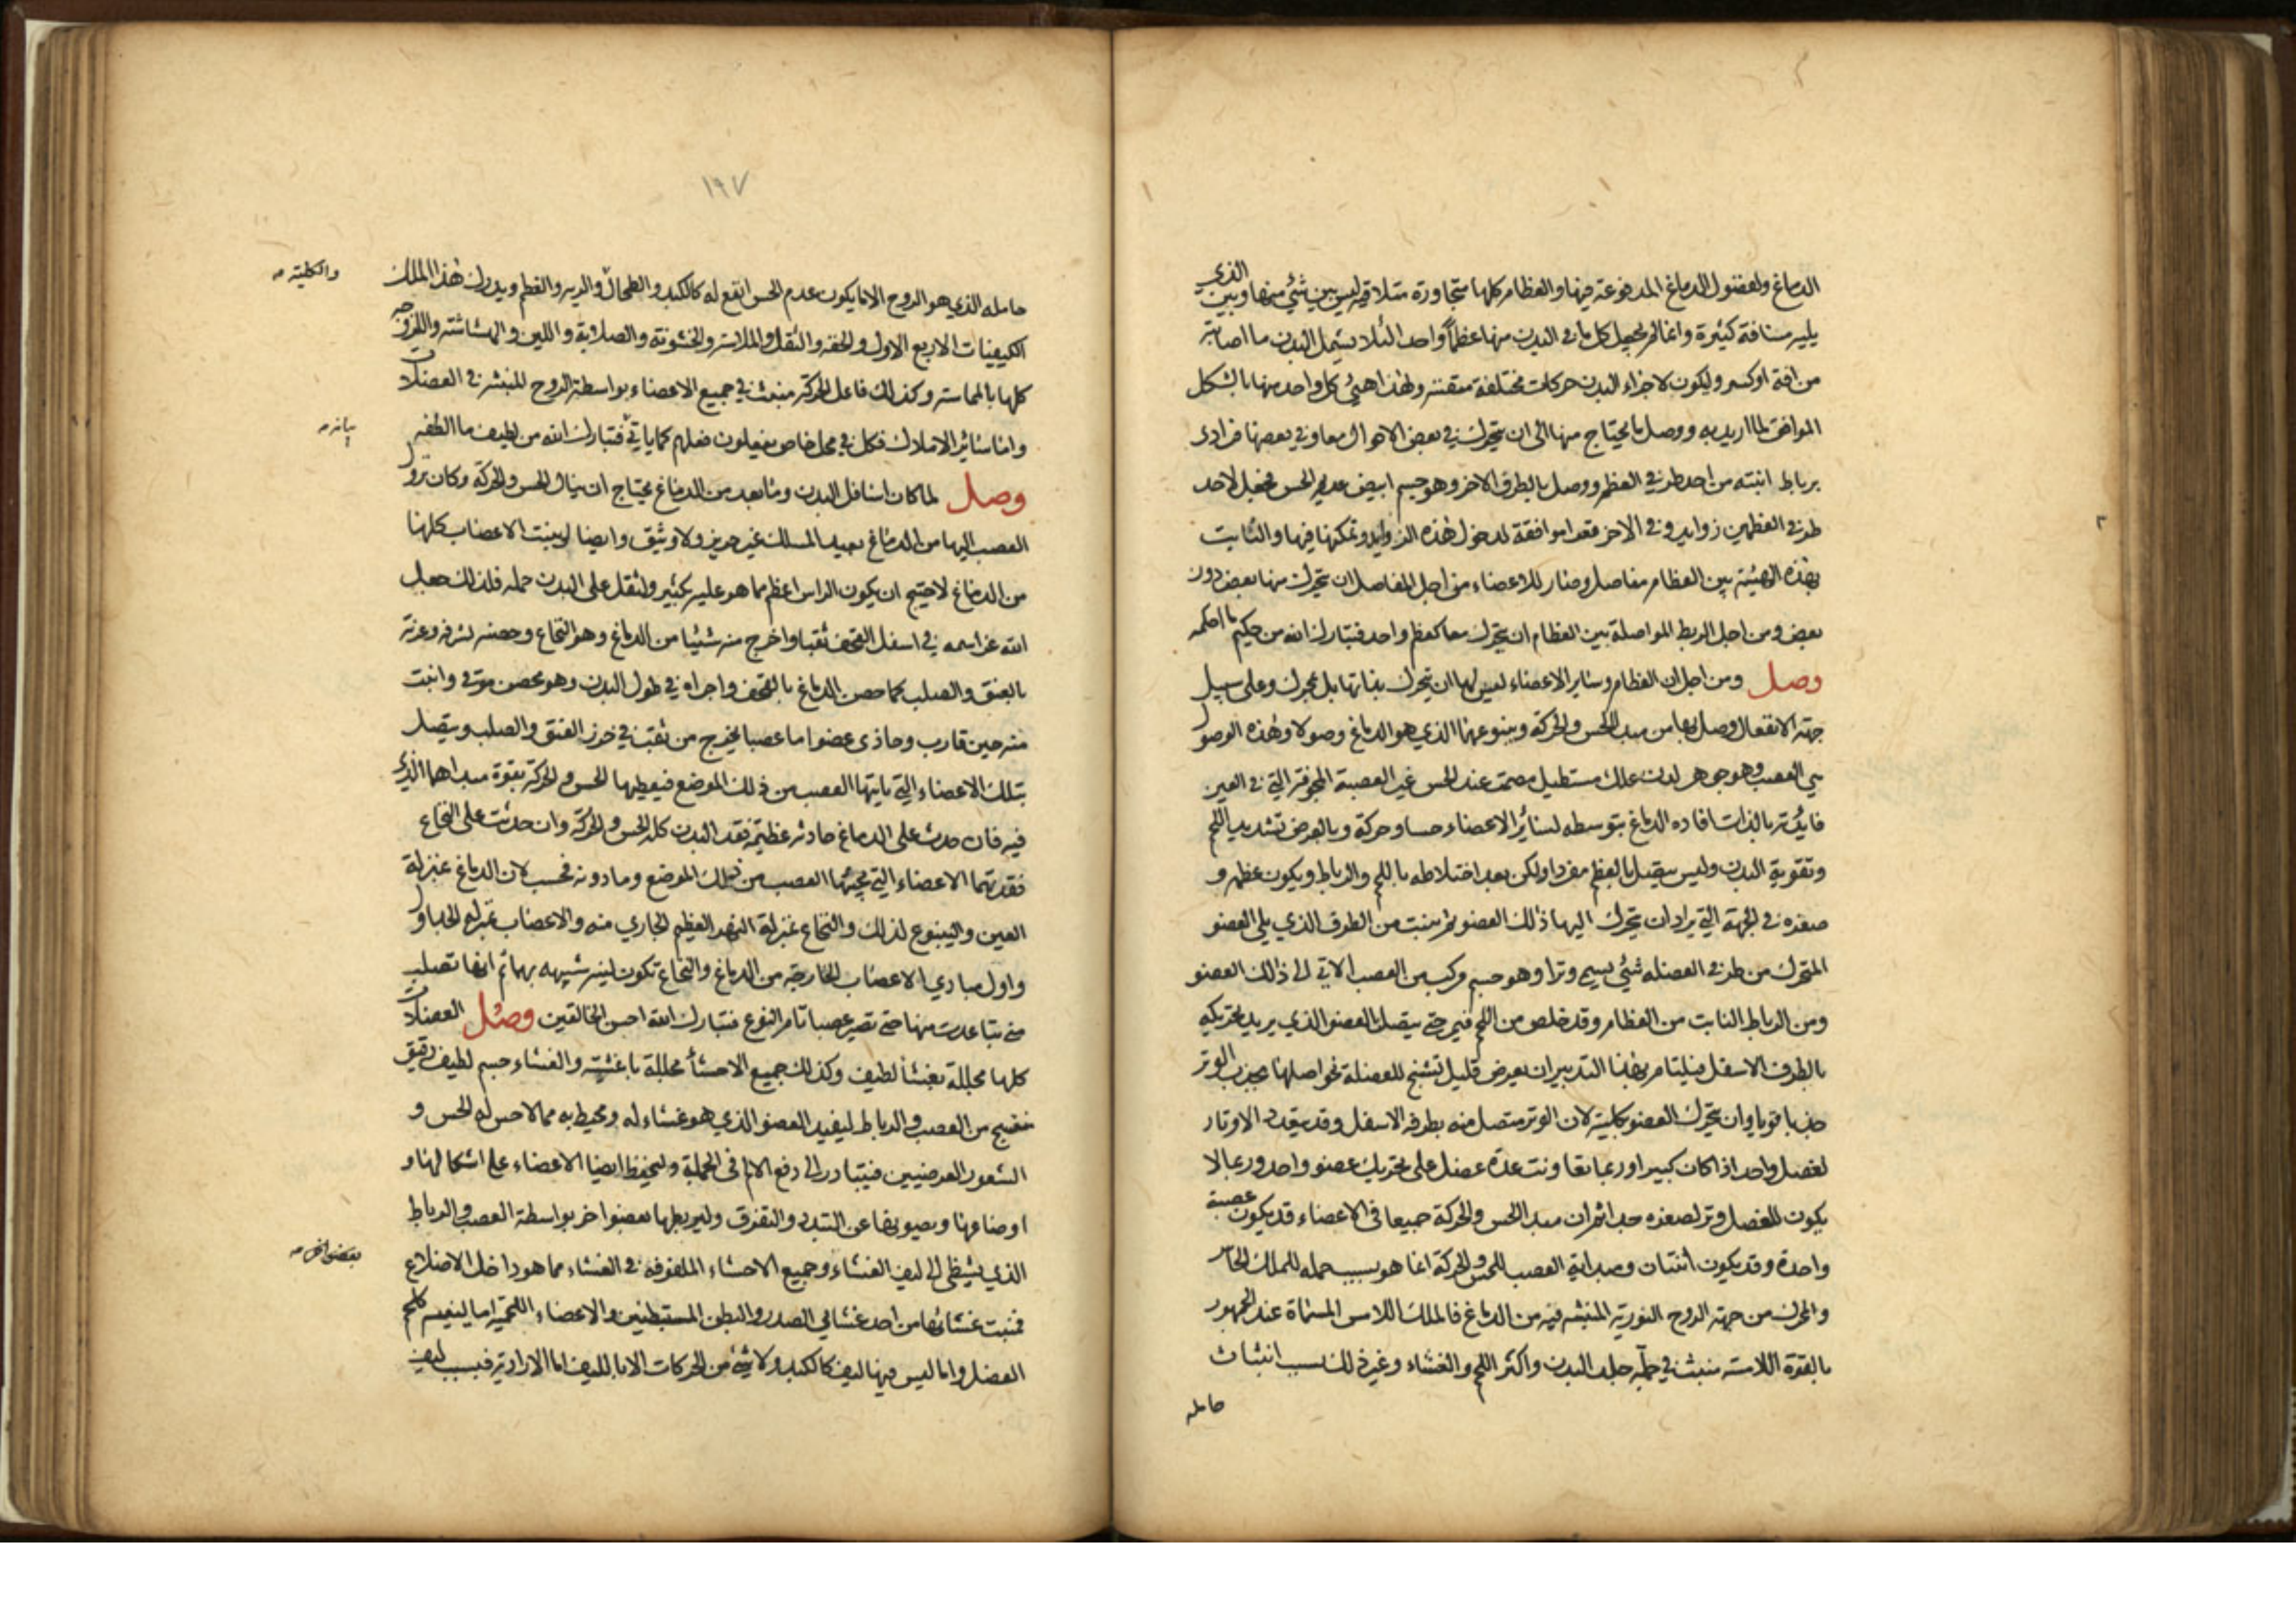 الدماغ ولفضول الدماغ المدفوعة فيها والعظام كلها متجاورة متلاقية ليس بين شئ منها وبين الذي
يليه مسافة كثيرة وانما لم يجعل كل ما في البدن منها عظماً واحدا لئلا يشمل البدن ما اصابته
من افة او كسر وليكون لاجزاء البدن حركات مختلفة متفننة ولهذا هيئ كل واحد منها بالشكل
الموافق لما اريد به ووصل ما يحتاج منها الى ان يتحرك في بعض الاحوال معا وفي بعضها فرادى
برباط انبته من احد طرفي العظم ووصل بالطرف الاخر وهو جسم ابيض عديم الحس فجعل لاحد
طرفي العظمين زوايد وفي الاخر مقعرا موافقة لدخول هذه الزوايد وتمكنها فيها والتأمت
بهذه الهيئة بين العظام مفاصل وصار للاعضاء من اجل المفاصل ان يتحرك منها بعض دون
بعض ومن اجل الربط المواصلة بين العظام ان يتحرك معا كعظم واحد فتبارك الله من حكيم ما احكمه
وصل ومن اجل ان العظام وساير الاعضاء ليس لها ان يتحرك بذاتها بل بمحرك وعلى سبيل
جهة الانفعال وصل بها من مبدا الحس والحركة وينبوعهما الذي هو الدماغ وصولا وهذه الوصول
هي العصب وهو جوهر لدن علك مستطيل مصمت عند الحس غير العصبة المجوفة التي في العين
فايدته بالذات افادة الدماغ بتوسطه لسائر الاعضاء حسا وحركة وبالعرض تشديد اللحم
وتقوية البدن وليس يتصل بالعظم مفردا ولكن بعد اختلاطه باللحم والرباط ويكون عظمه و
صغره في الجهة التي يراد ان يتحرك اليها ذالك العضو ثم ينبت من الطرف الذي يلي العضو
المتحرك من طرفي العضلة شئ يسمى وترا وهو جسم مركب من العصب الاتي الى ذالك العضو
ومن الرباط النابت من العظام وقد خلص من اللحم فيمر حتى يتصل بالعضو الذي يريد تحريكه
بالطرف الاسفل فيلتام بهذا التدبير ان يعرض قليل تشنج للعضلة نحو اصلها فيجذب الوتر
جذبا قويا وان يتحرك العضو بكليته لان الوتر متصل منه بطرفه الاسفل وقد يتعدد الاوتار
لعضل واحد اذا كان كبيرا وربما تعاونت عدة عضل على تحريك عضو واحد وربما لا
يكون للعضل وتر لصغره جدا ثم ان مبدا الحس والحركة جميعا في الاعضاء قد يكون عصبة
واحدة وقد يكون اثنتان ومبدائية العصب للحس والحركة انما هو بسبب حمله للملك الحاس
والمحرك من جهة الروح النورية المنبثة فيه من الدماغ فالملك اللامس المسماة عند الجمهور
بالقوة اللامسة منبث في جملة جلد البدن واكثر اللحم والغشاء وغير ذلك بسبب انبثاث
حامله
١٩٧
حامله الذي هو الروح الا ما يكون عدم الحس انفع له كالكبد والطحال والرية والعظم ويدرك هذا الملك
والكلية صح
الكيفيات الاربع الاول والخفة والثقل والملاسة والخشونة والصلابة واللين والهشاشة واللزوجة
كلها بالمماسة وكذلك فاعل الحركة منبث في جميع الاعضاء بواسطة الروح المنبثة في العضلات
واما سائر الاملاك فكل في محل خاص يفعلون فعلهم كما ياتي فتبارك الله من لطيف ما الطفه
بيانه صح
وصل لما كان اسافل البدن وما بعد من الدماغ يحتاج ان ينال الحس والحركة وكان نزول
العصب اليها من الدماغ بعيد المسلك غير حريز ولا وثيق وايضا لو نبتت الاعصاب كلها
من الدماغ لاحتيج ان يكون الراس اعظم مما هو عليه بكثير ولثقل على البدن حمله فلذلك جعل
الله عز اسمه في اسفل القحف ثقبا واخرج منه شيئا من الدماغ وهو النخاع وحصنه لشرفه وعزته
بالعنق والصلب كما حصن الدماغ بالقحف واجراه في طول البدن وهو محصن موقى وانبت
منه حين قارب وحاذى عضوا ما عصبا يخرج من ثقب في خرز العنق والصلب ويتصل
بتلك الاعضاء التي ياتيها العصب من ذلك الموضع فيعطيها الحس والحركة بقوة مبداهما الذي
فيه فان حدث على الدماغ حادثة عظيمة فقد البدن كله الحس والحركة وان حدثت على النخاع
فقدتهما الاعضاء التي يجيئها العصب من ذلك الموضع وما دونه فحسب لان الدماغ بمنزلة
العين والينبوع لذلك والنخاع بمنزلة النهر العظيم الجاري منه والاعصاب بمنزلة الجداول
واول مبادي الاعصاب الخارجة من الدماغ والنخاع تكون لينة شبيهة بهما ثم انها تصلب
متى تباعدت منها حتى تصير عصبا تام النوع فتبارك الله احسن الخالقين وصل العضلات
كلها مجللة بغشاء لطيف وكذلك جميع الاحشاء مجللة باغشية والغشاء جسم لطيف رقيق
منتسج من العصب والرباط ليفيد العضو الذي هو غشاء له ومحيط به مما لا حس له الحس و
الشعور العرضيين فيتبادر الى دفع الالام في الجملة وليحفظ ايضا الاعضاء على اشكالها و
اوضاعها ويصونها عن التبدد والتفرق وليربطها بعضو اخر بواسطة العصب والرباط
الذي يشظى الى ليف الغشاء وجميع الاحشاء الملفوفة في الغشاء مما هو داخل الاضلاع
بعضو اخر صح
فمنبت غشائها من احد غشائي الصدر والبطن المستبطنين والاعضاء اللحمية اما ليفية كلحم
العضل واما ليس فيها ليف كالكبد ولا شئ من الحركات الا بالليف اما الارادية فبسبب ليف